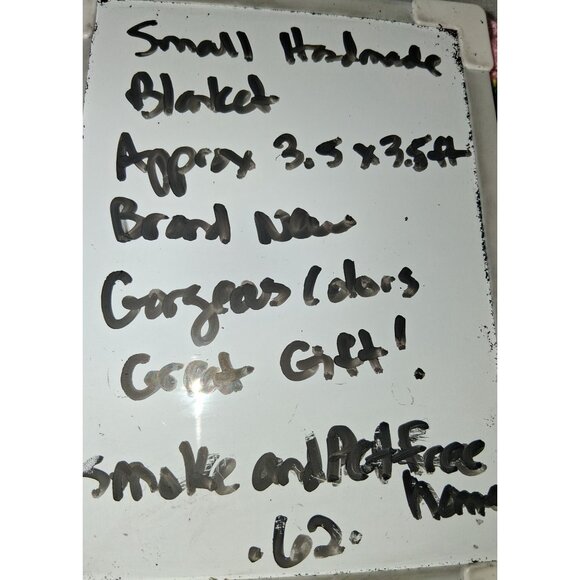 Small Handmade
Blanket
Approx 3.5 x 3.5ft
Brand New
Gorgeas Colors
Great Gift!
Smoke and Pet free
home
.62.